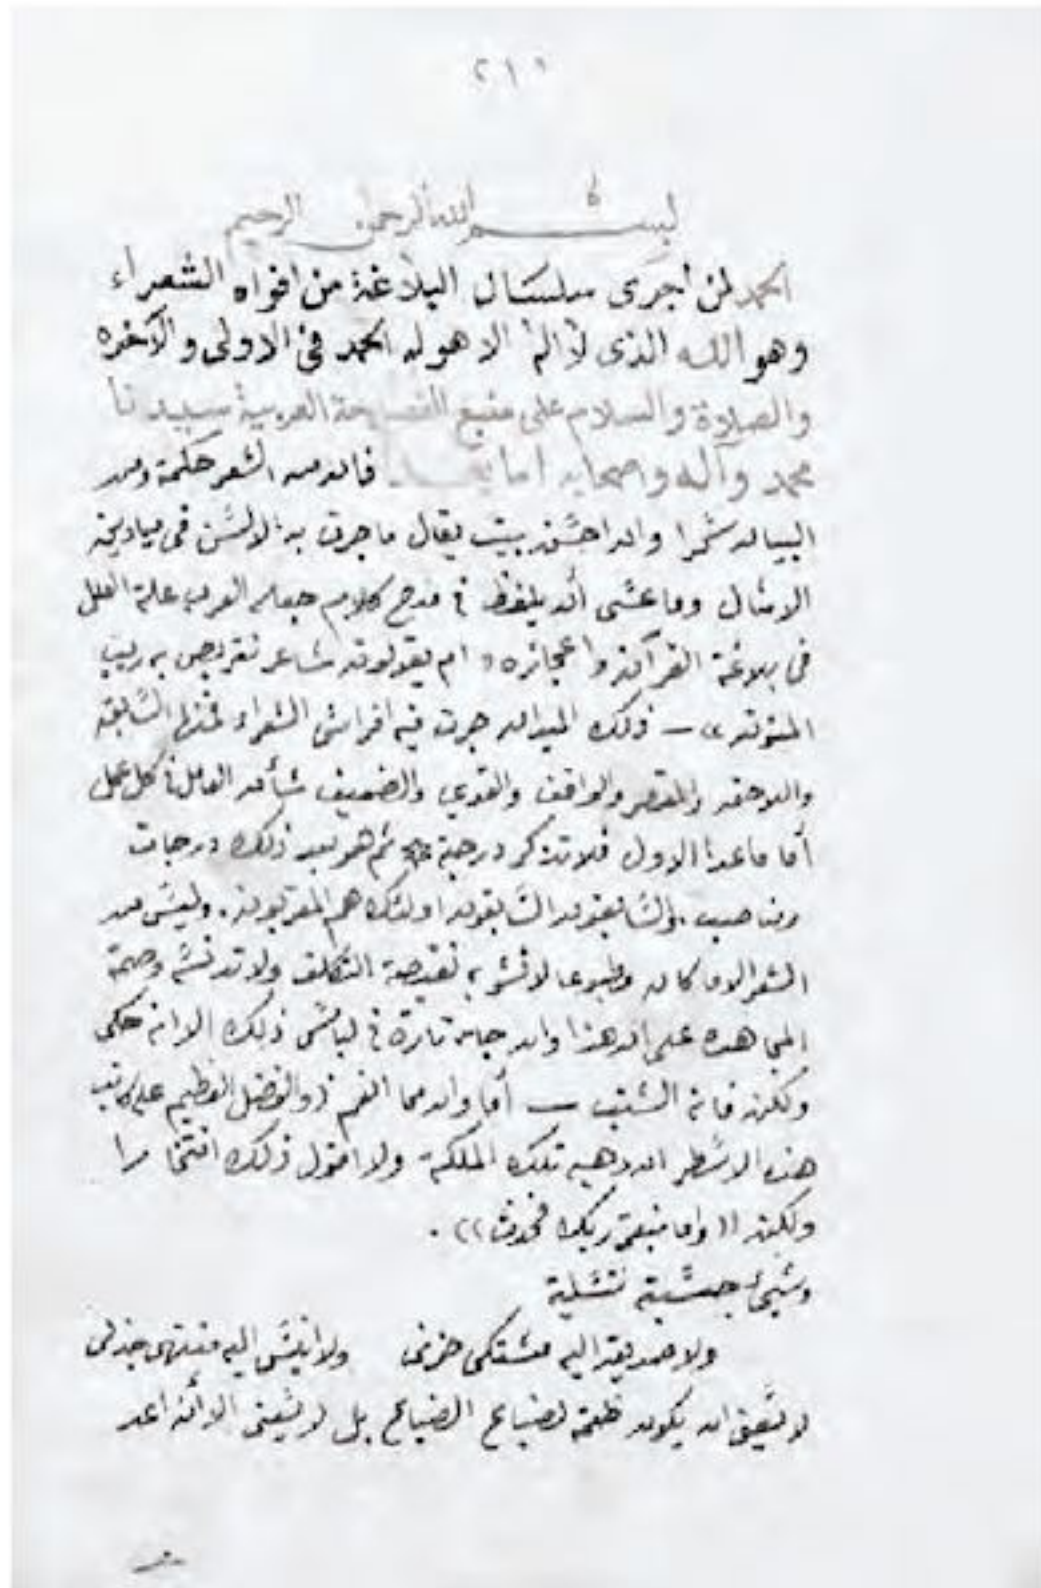 ٢١١
بسم الله الرحمن الرحيم
الحمد لمن أجرى سلسال البلاغة من افواه الشعراء
وهو الله الذى لا اله الا هو له الحمد فى الاولى والآخره
والصلاة والسلام على منبع الفصاحة العربية سيدنا
محمد وآله واصحابه اما بعد فان من الشعر حكمة ومن
البيان سحرا وان احسن بيت يقال ما جرت به الالسن فى ميادين
الامثال وما عسى أن يلفظ فى مدح كلام جعله العرب علة العلل
فى بلاغة القرآن واعجازه « ام يقولون شاعر نتربص به ريب
المنون » — ذلك الميدان جرت فيه افراس الشعراء فمنها السابق
واللاحق والمقصر والواقف والقوي والضعيف شأن العامل فى كل عمل
أما ما عدا الاول فلا تذكر درجة ثم هو بعد ذلك درجات
ومناصب والسابقون السابقون اولئك هم المقربون. وليس من
الشعر الا ما كان مطبوعا لا تشوبه نقيصة التكلف ولا تدنسه وصمة
على ان هذا وان جاء تارة فى لباس ذلك الا انه حكى
ولكن فاته الشنب — أما وان مما انعم ذو الفضل العظيم على كاتب
هذه الاسطر ان وهبه تلك الملكة ولا اقول ذلك افتخارا
ولكن (( واما بنعمة ربك فحدث )) .
ولا صديق اليه مشتكى حزنى ولا انيس اليه منتهى جذلى
ان يكون الضياع بل لا الا أن اعد